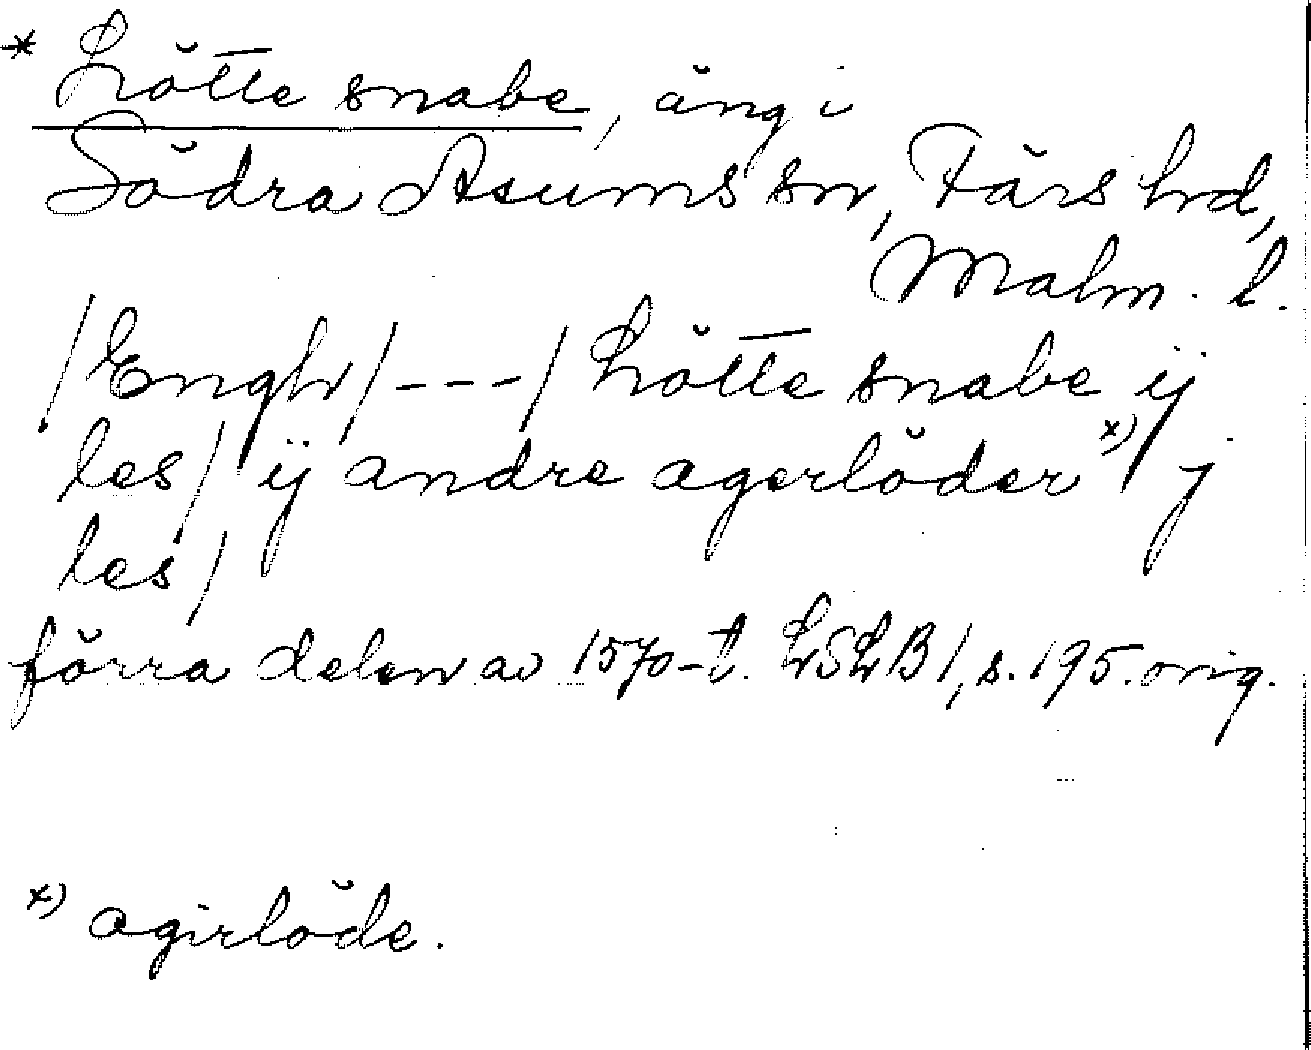 * Lötte snabe, äng i
Södra Asums sn, Färs hd,
Malm. l.
/Engh/---/Lötte snabe ij
les/ ij andre agerlöder x) / j
les/
förra delen av 1570-t. LSLB 1, s. 195. orig.
x) agirlöde.